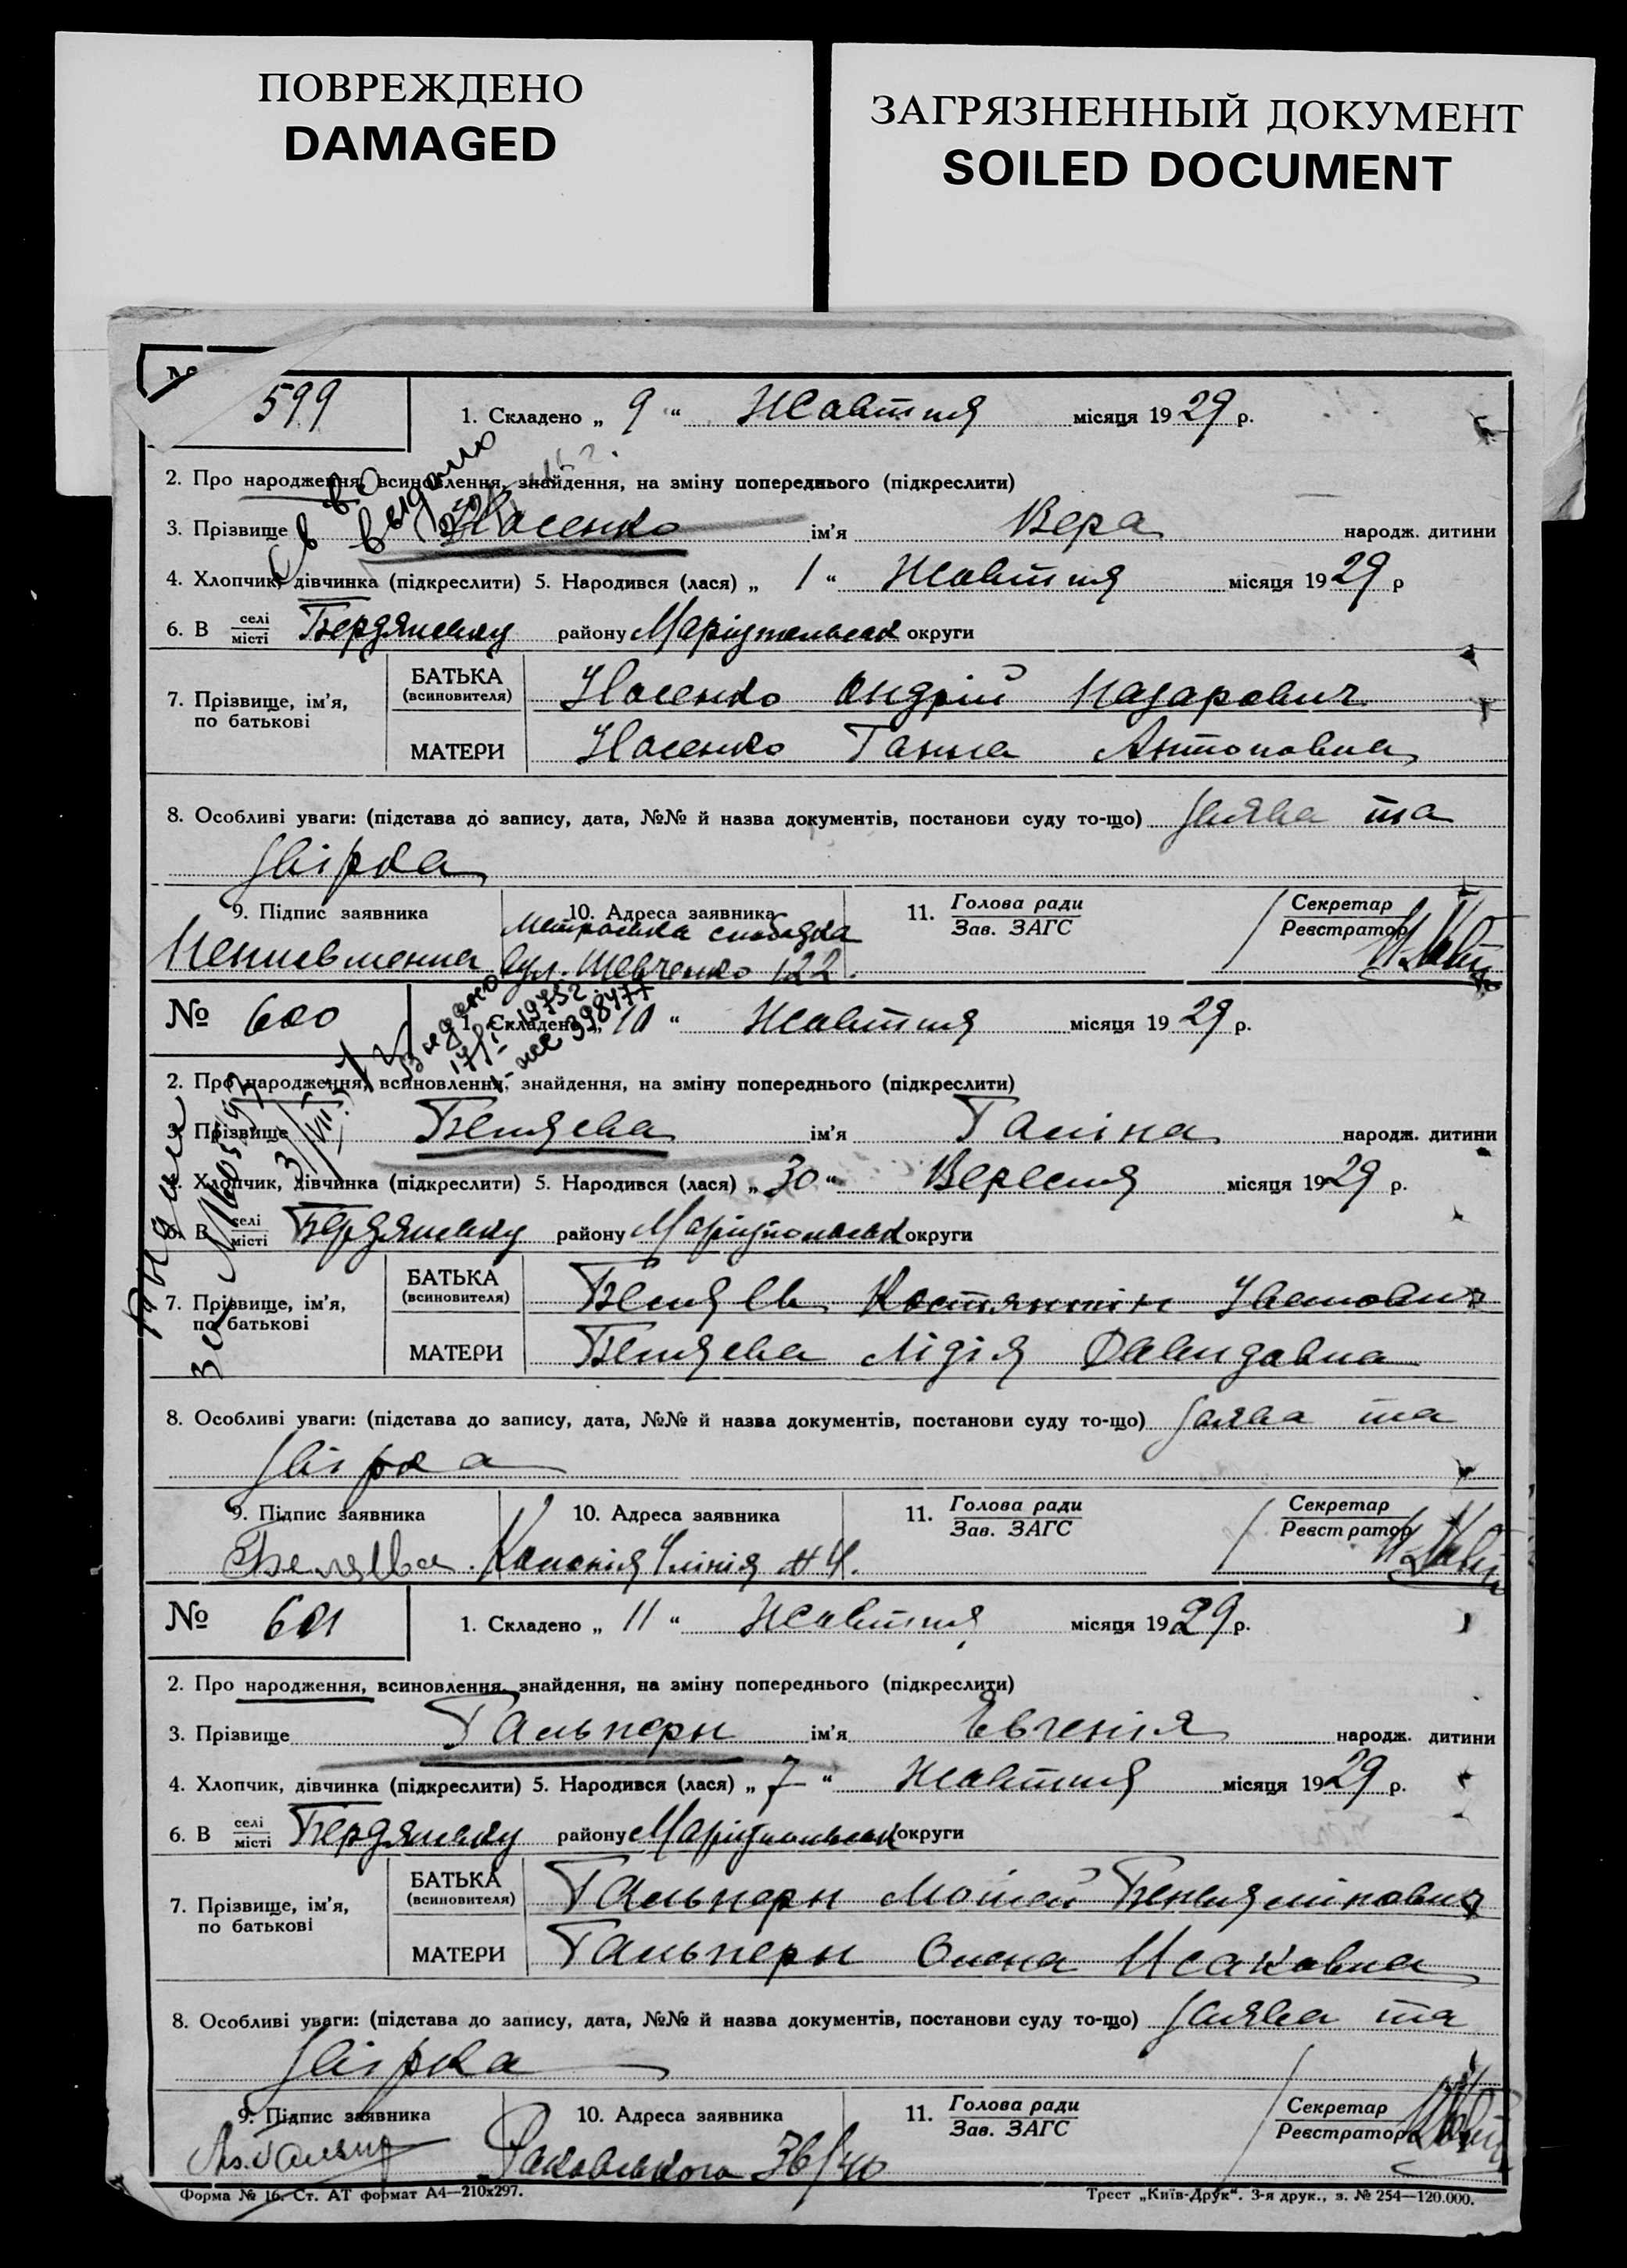 ПОВРЕЖДЕНО
DAMAGED
ЗАГРЯЗНЕННЫЙ ДОКУМЕНТ
SOILED DOCUMENT
№ 599
1. Складено „ 9 “ Жовтня місяця 1929 р.
2. Про народження, всиновлення, знайдення, на зміну попереднього (підкреслити)
3. Прізвище Носенко ім'я Вера народж. дитини
4. Хлопчик, дівчинка (підкреслити) 5. Народився (лася) „ 1 “ Жовтня місяця 1929 р
6. В селі місті Бердянську району Маріупольськ округи
7. Прізвище, ім'я, по батькові
БАТЬКА (всиновителя) Носенко Андрій Назарович
МАТЕРИ Носенко Ганна Антоновна
8. Особливі уваги: (підстава до запису, дата, №№ й назва документів, постанови суду то-що) Заява та
звірка
9. Підпис заявника
Неписьменна
10. Адреса заявника
слободка
вул. Шевченко 122.
11. Голова ради
Зав. ЗАГС
Секретар
Реєстратор
С в во выдано
№ 600
1. Складено „ 10 “ Жовтня місяця 1929 р.
Видано
2. Про народження, всиновлення, знайдення, на зміну попереднього (підкреслити)
3. Прізвище Беляева ім'я Галіна народж. дитини
4. Хлопчик, дівчинка (підкреслити) 5. Народився (лася) „ 30 “ Вересня місяця 1929 р.
6. В селі місті Бердянську району Маріупольськ округи
7. Прізвище, ім'я, по батькові
БАТЬКА (всиновителя) Беляев Костянтін Іванович
МАТЕРИ Беляева Лідія Давидовна
8. Особливі уваги: (підстава до запису, дата, №№ й назва документів, постанови суду то-що) Заява та
звірка
9. Підпис заявника
Беляева
10. Адреса заявника
Колонія 4 лінія № 4.
11. Голова ради
Зав. ЗАГС
Секретар
Реєстратор
№ 601
1. Складено „ 11 “ Жовтня місяця 1929 р.
2. Про народження, всиновлення, знайдення, на зміну попереднього (підкреслити)
3. Прізвище Гальперн ім'я Евгенія народж. дитини
4. Хлопчик, дівчинка (підкреслити) 5. Народився (лася) „ 7 “ Жовтня місяця 1929 р.
6. В селі місті Бердянську району Маріупольськ округи
7. Прізвище, ім'я, по батькові
БАТЬКА (всиновителя) Гальперн Мойсей Бениямінович
МАТЕРИ Гальперн Олена Исаковна
8. Особливі уваги: (підстава до запису, дата, №№ й назва документів, постанови суду то-що) Заява та
звірка
9. Підпис заявника
10. Адреса заявника
Раковського 36/40
11. Голова ради
Зав. ЗАГС
Секретар
Реєстратор
Форма № 16. Ст. АТ формат А4—210х297.
Трест „Київ-Друк“. 3-я друк., з. № 254—120.000.